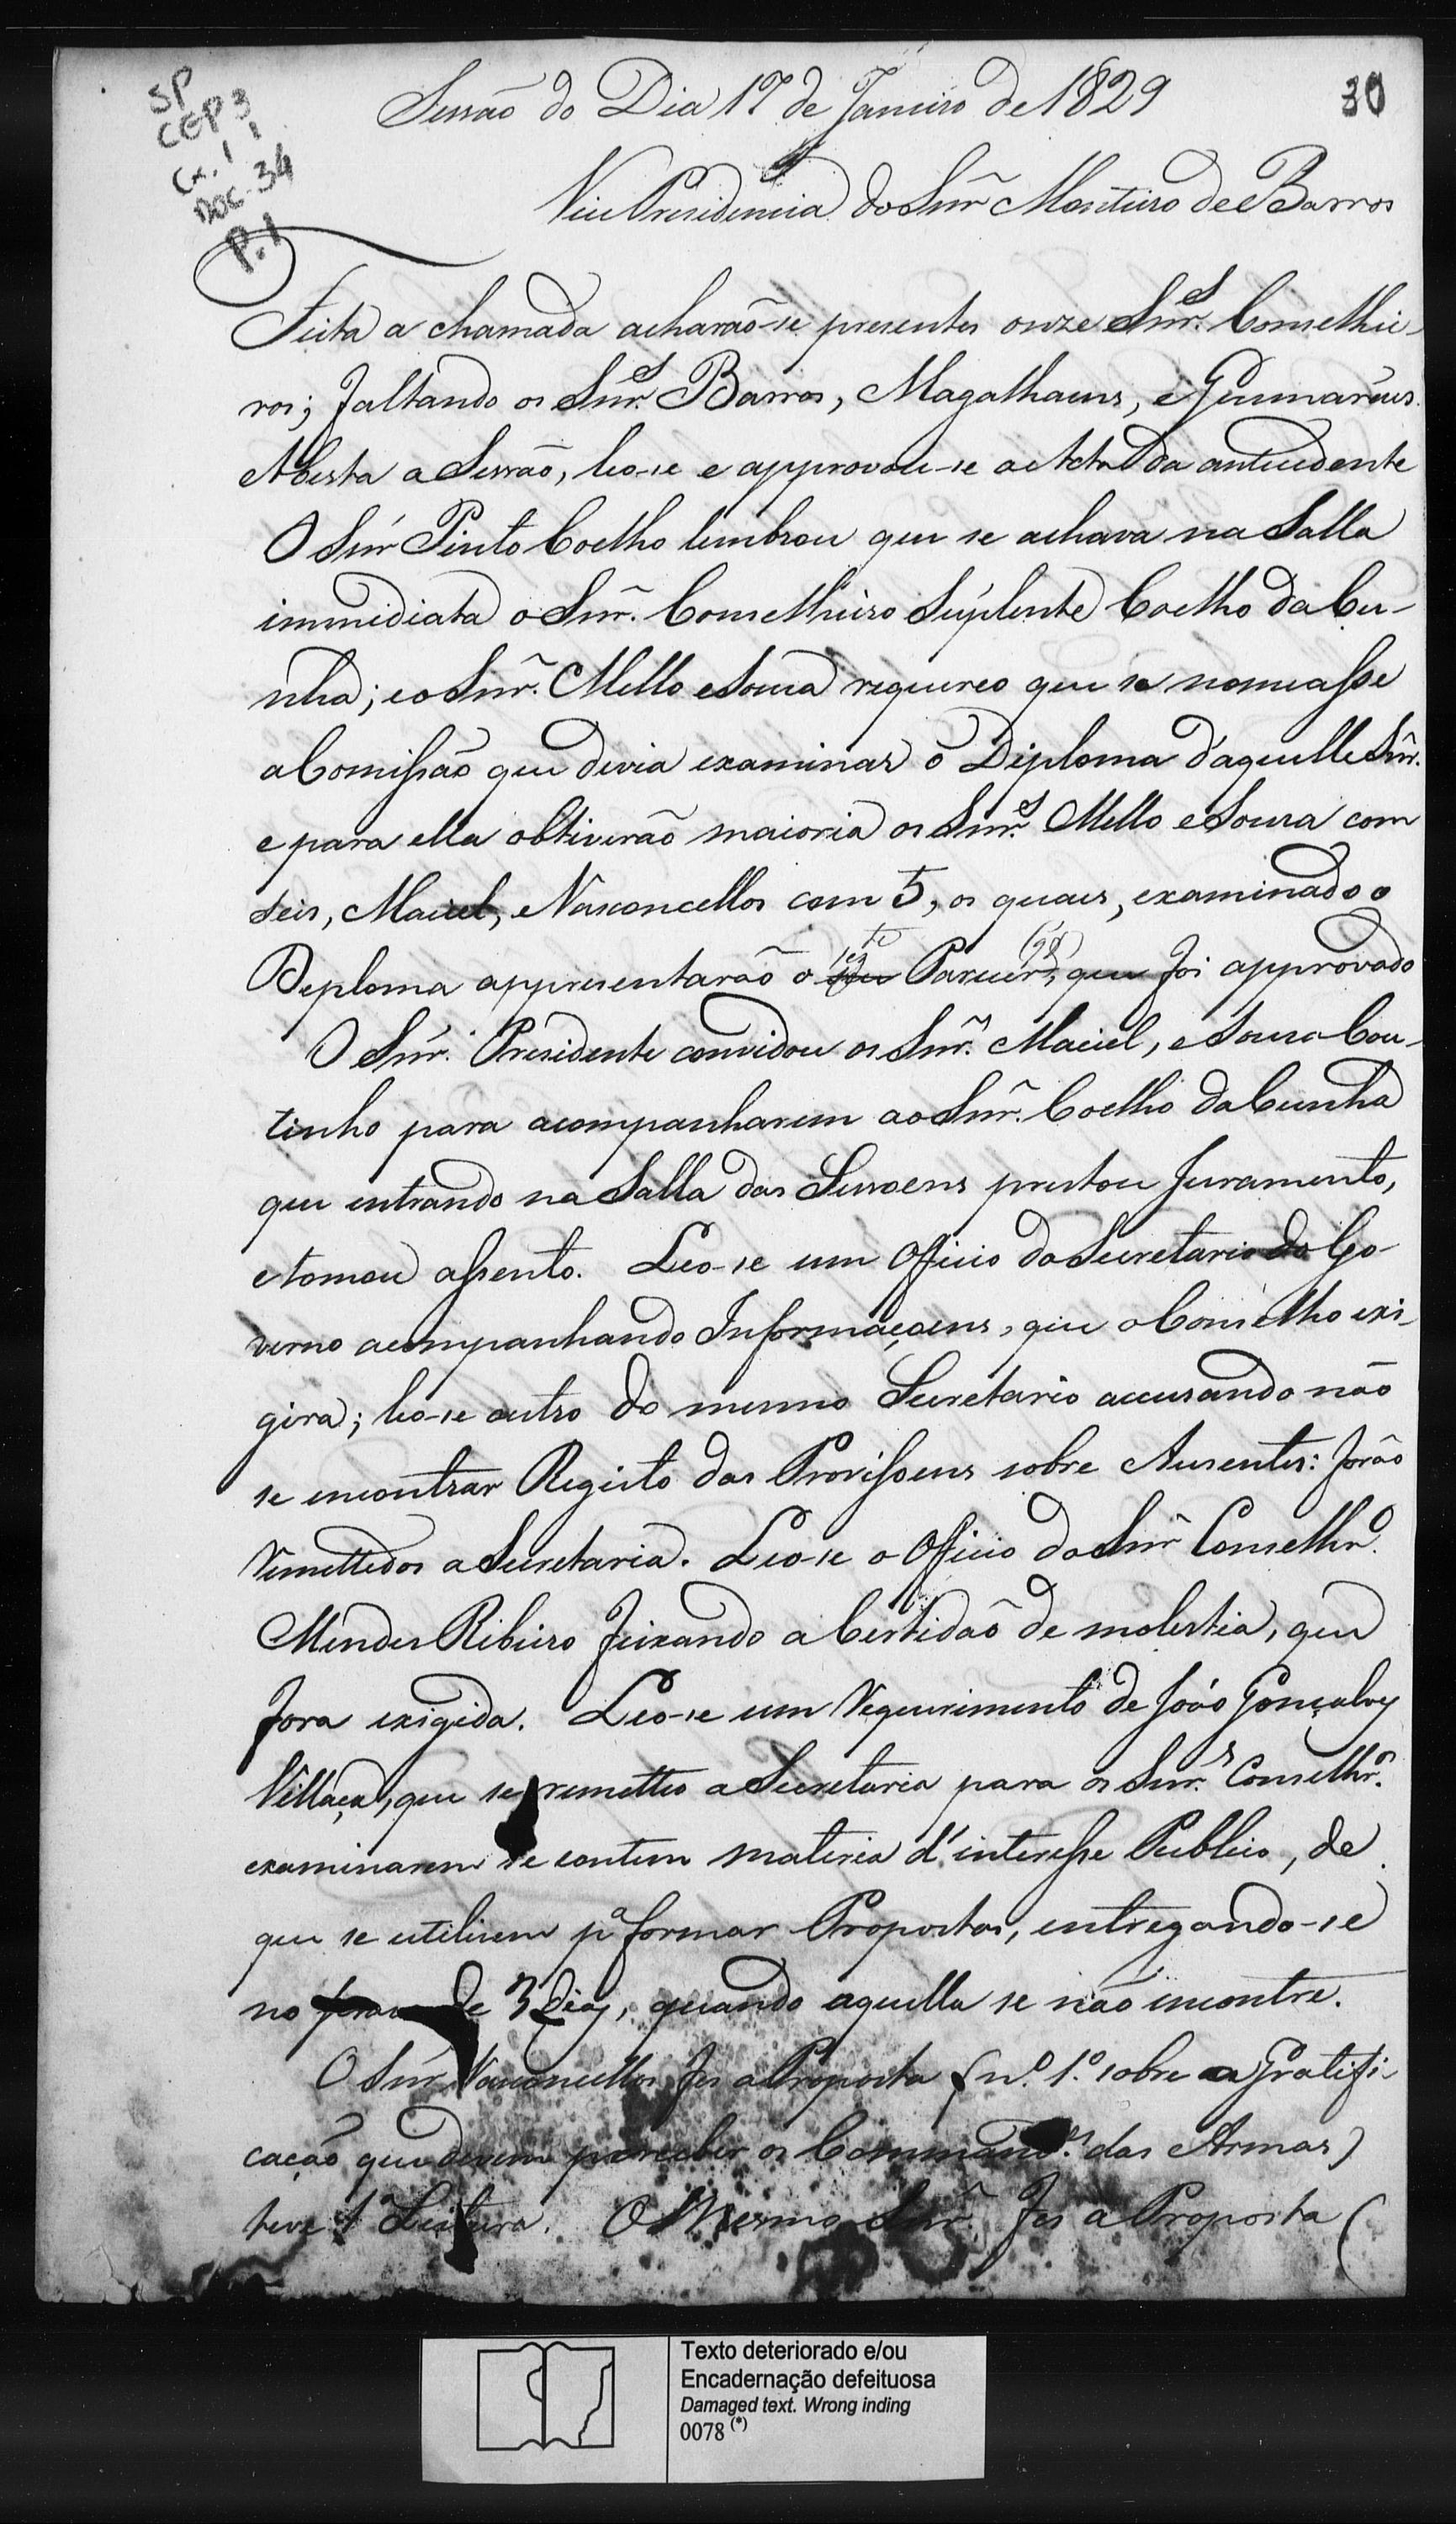 SP
CGP 3
Cx. 1 1
DOC. 34
P. 1
30
Sessão do Dia 17 de Janeiro de 1829
Vice Presidencia do Snr Monteiro de Barros
Feita a chamada acharão-se presentes onze Snr.s Conselhei-
ros; faltando os Snr.s Barros, Magalhaens, e Guimarães.
Aberta a Sessão, leo-se e approvou-se a Acta da antecedente
O Snr Pinto Coelho lembrou que se achava na Salla
immediata o Snr. Conselheiro Suplente Coelho da Cu-
nha; e o Snr. Mello e Souza requereo que se nomeasse
a Comissão que devia examinar o Diploma d'aquelle Snr.
e para ella obtiverão maioria os Snr.s Mello e Souza com
seis, Maciel, e Vasconcellos com 5, os quaes, examinado o
Deploma appresentarão o seu Parecer, que foi approvado
O Snr. Presidente convidou os Snr.s Maciel, e Souza Cou-
tinho para acompanharem ao Snr. Coelho da Cunha
que entrando na Salla das Sessoens prestou Juramento,
e tomou assento. Leo-se um Officio do Secretario do Go-
verno acompanhando Informaçoens, que o Conselho exi-
gira; leo-se outro do mesmo Secretario accusando não
se encontrar Registo das Provisoens sobre Ausentes: forão
remettidos a Secretaria. Leo-se o Officio do Snr Conselhr.o
Mendes Ribeiro deixando a Certidão de molestia, que
fora exigida. Leo-se um requerimento de João Gonçalves
Villaça, que se remetteo a Secretaria para os Snr.s Conselhr.os
examinarem se contem materia d'interesse Publico, de
que se utilisem p.a formar Propostas, entregando-se
no de 3 Dias, quando aquella se não encontre.
O Snr Vasconcellos fes a Proposta (n.o 1.o sobre a Gratifi-
cação que devem perceber os Command.es das Armas)
teve 1.a Leitura. O Mesmo Snr. fes a Proposta (
Texto deteriorado e/ou
Encadernação defeituosa
Damaged text. Wrong inding
0078 (*)